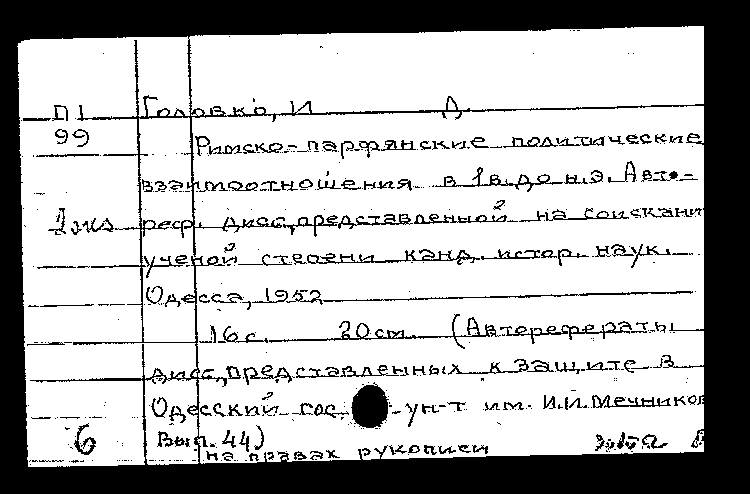 П1 Головко, И Д.
99 Римско-парфянские политические
взаимоотношения в 1в. до н.э. Авто-
реф. дисс., представленной на соискани
ученой степени канд. истор. наук.
Одесса, 1952
16с. 20см. (Авторефераты
дисс., представленных к защите в
Одесский гос. ун-т им. И.И. Мечников
6 Вып. 44)
на правах рукописи